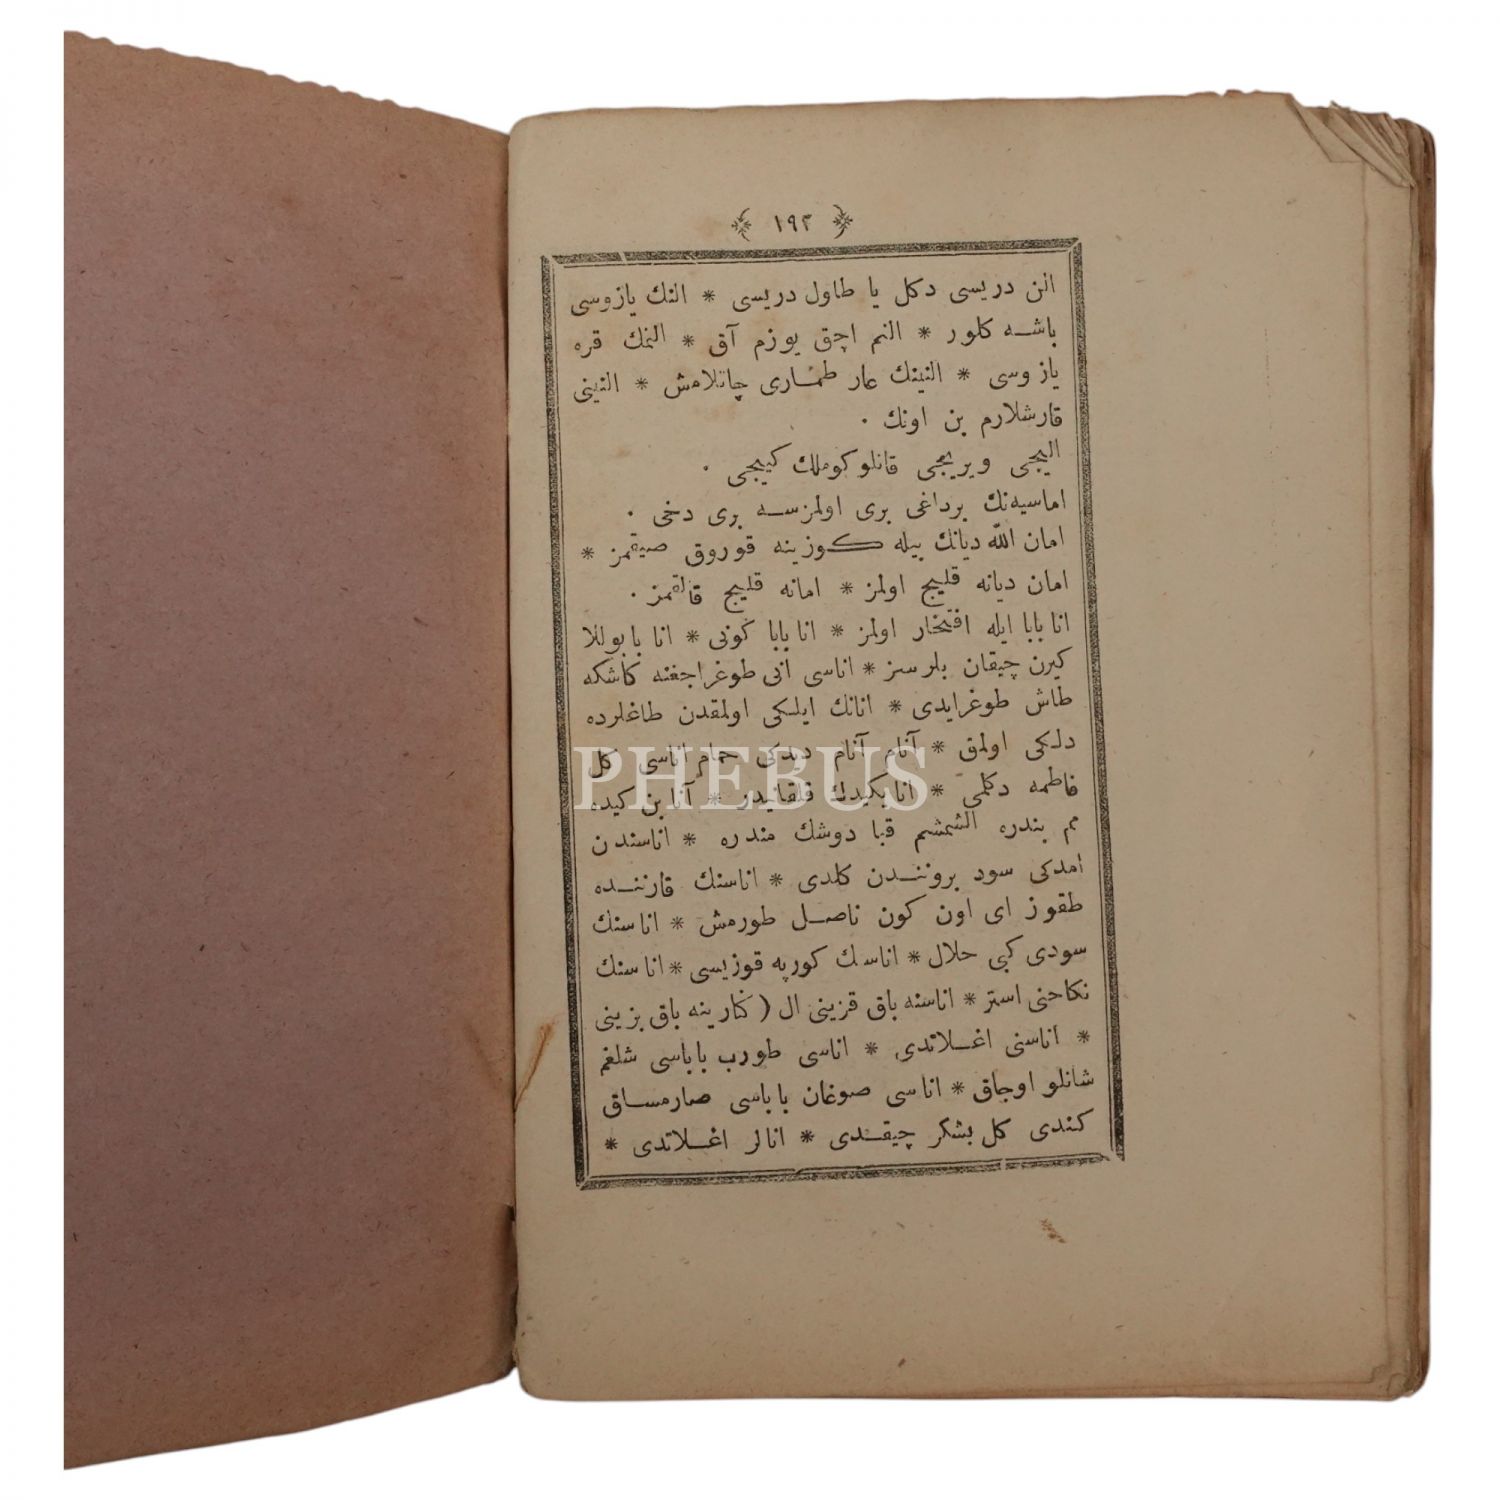 ١٩٣
الن دریسی دكل یا طاول دریسی * النك یازوسی
باشه كلور * النم اچق یوزم آق * النمك قره
یازوسی * النینك عار طماری چاتلامش * النینی
قارشلارم بن اونك .
الیجی ویریجی قانلو كوملك كییجی .
اماسیه‌نك برداغی بری اولمزسه بری دخی .
امان الله دیانك بیله كوزینه قوروق صیقمز *
امان دیانه قلیج اولمز * امانه قلیج قالقمز .
انا بابا ایله افتخار اولمز * انا بابا كونی * انا بابوللا
كیرن چیقان بلرسز * اناسی انی طوغراجغنه كاشكه
طاش طوغرایدی * انانك ایلكی اولمقدن طاغلرده
دلكی اولمق * آنام آنام دیدكی حمام اناسی كل
فاطمه دكلمی * انا یكیدك قلقانیدر * آنا بن كیده
مم بندره الشمشم قبا دوشك مندره * اناسندن
امدكی سود بروننـدن كلدی * اناسنك قارننـده
طقوز ای اون كون ناصـل طورمش * اناسنك
سودی كبی حلال * اناسنك كورپه قوزیسی * اناسنك
نكاحنی استر * اناسنه باق قزینی ال ( كنارینه باق بزینی
* اناسنی اغـلاتدی * اناسی طورب باباسی شلغم
شانلو اوجاق * اناسی صوغان باباسی صارمسـاق
كندی كل بشكر چیقـدی * انالر اغـلاتدی *
PHEBUS